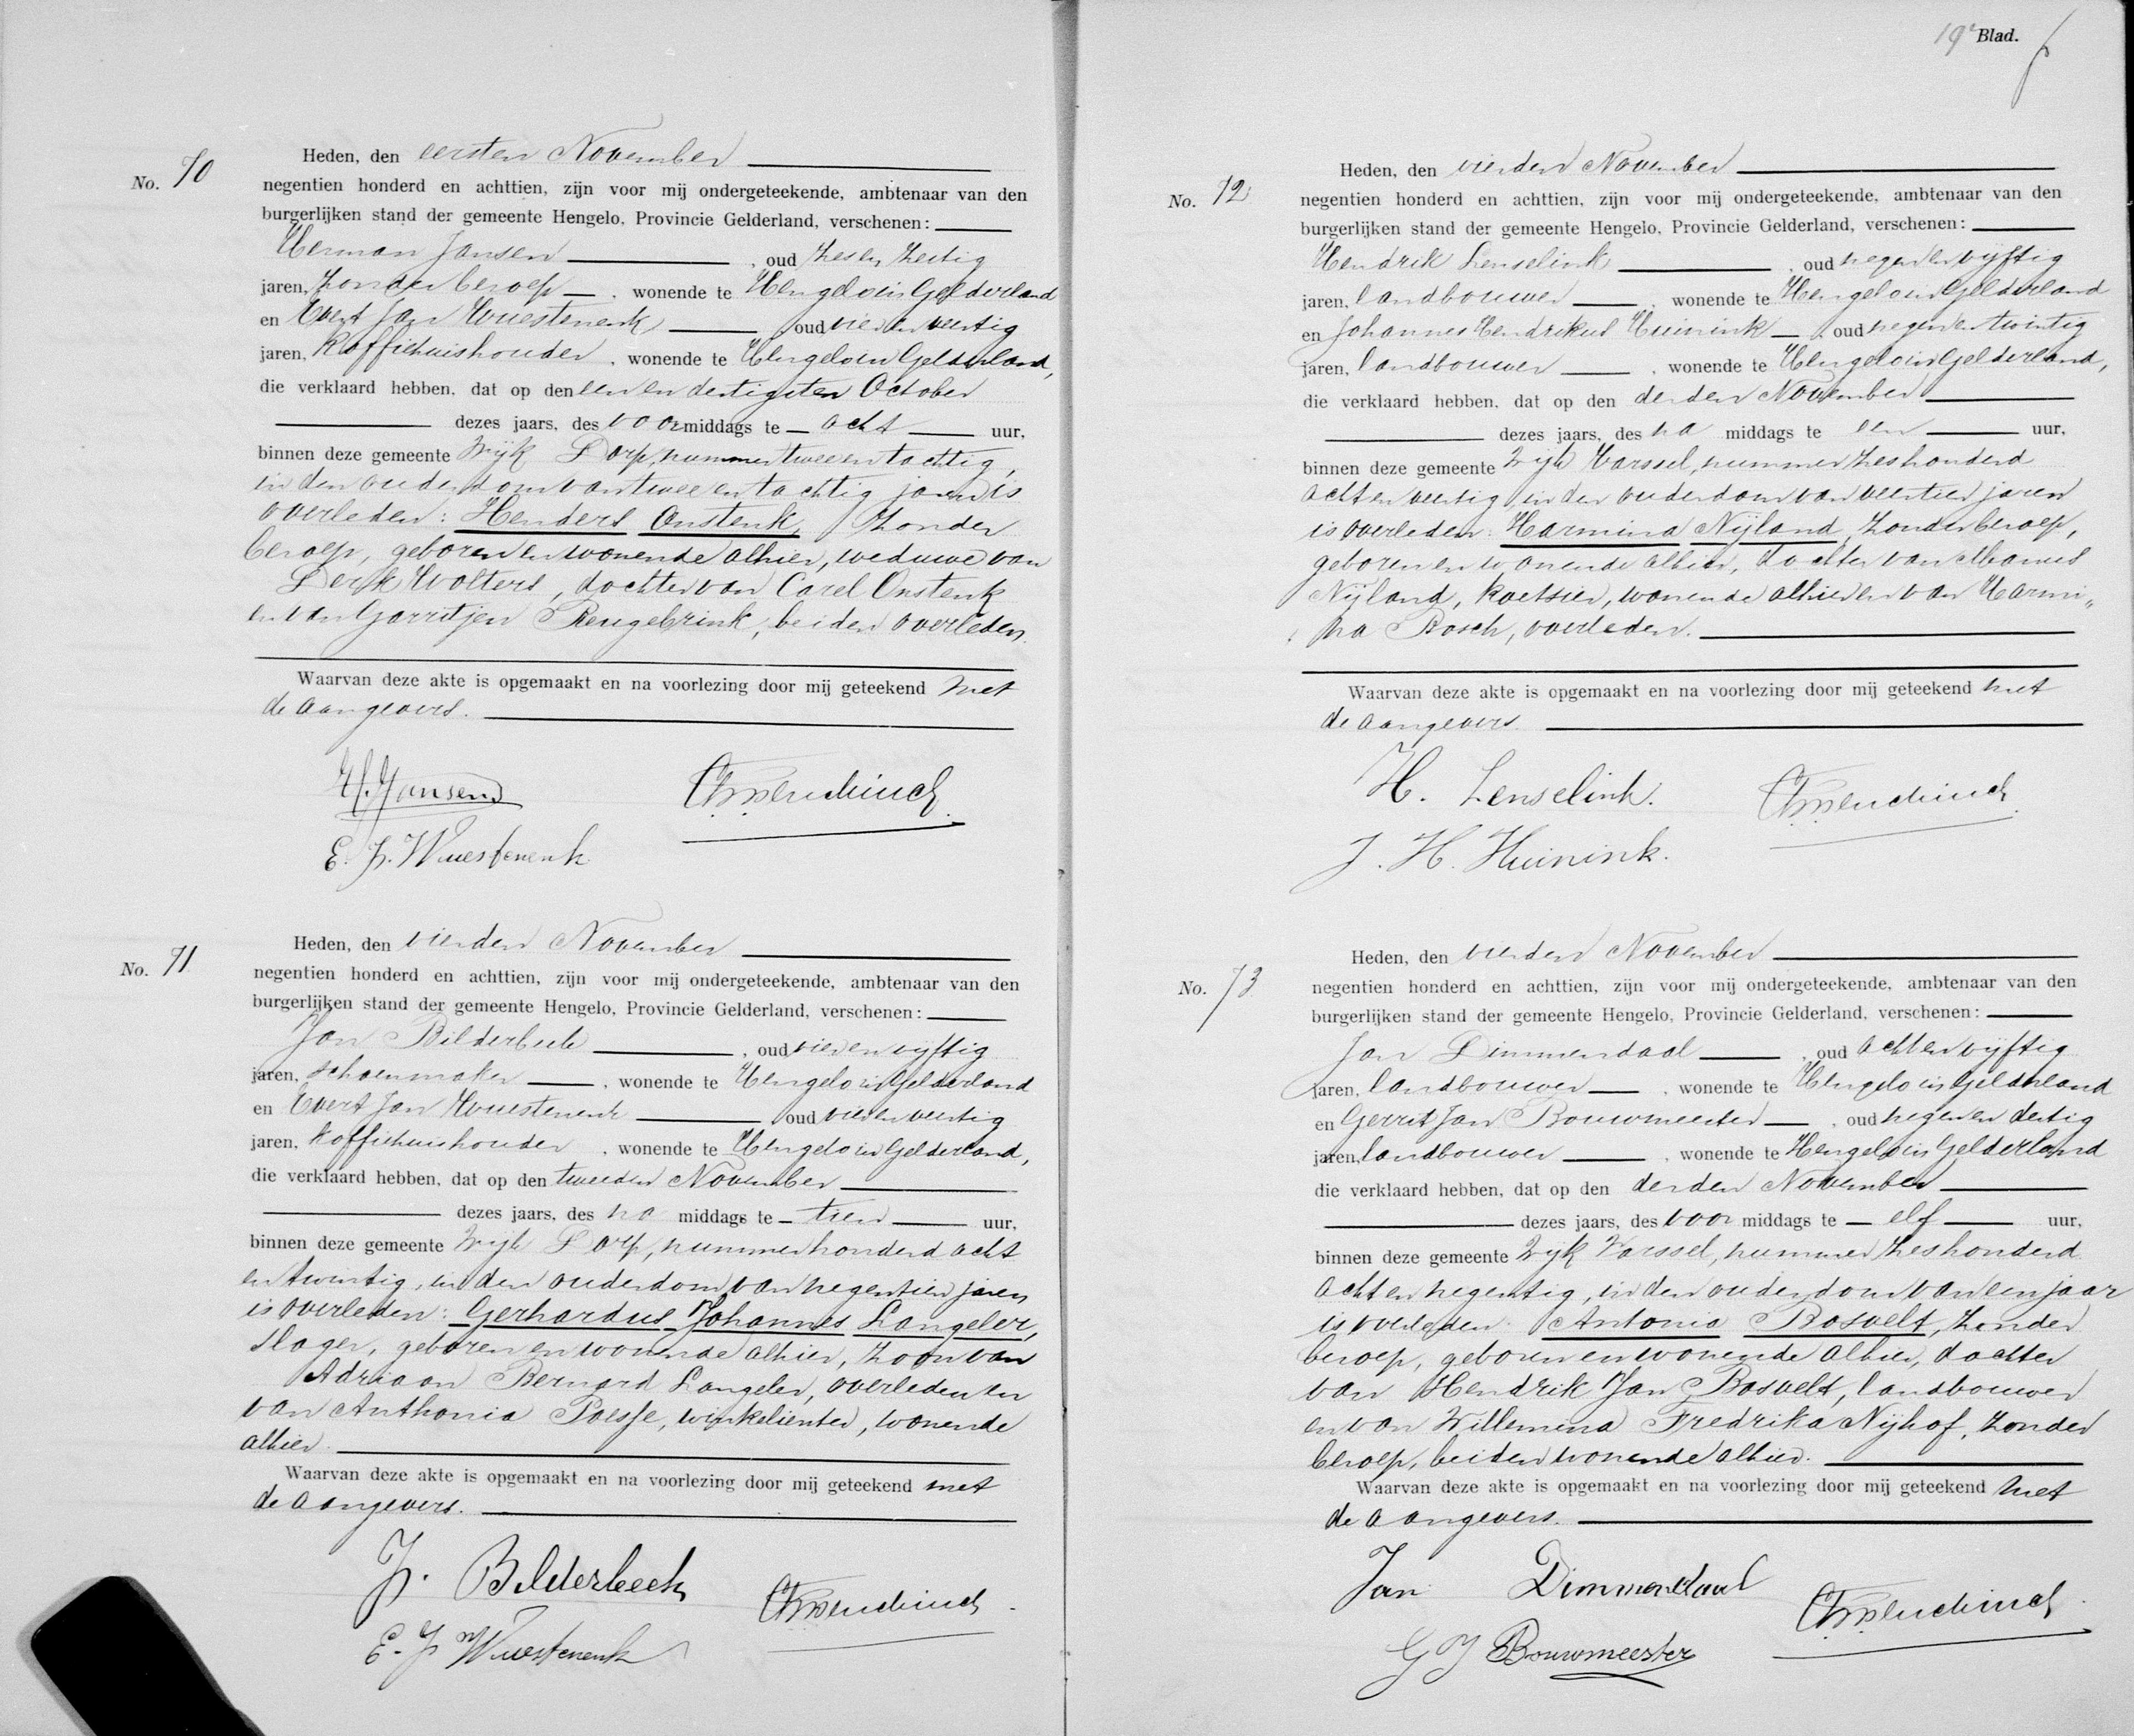 Heden, den eersten November
No. 70
negentien honderd en achttien, zijn voor mij ondergeteekende, ambtenaar van den
burgerlijken stand der gemeente Hengelo, Provincie Gelderland, verschenen:
Herman Jansen, oud zesenzestig
jaren, zonder beroep, wonende te Hengelo in Gelderland
en Evert Jan Wuestenenk, oud vierenveertig
jaren, koffiehuishouder, wonende te Hengelo in Gelderland,
die verklaard hebben, dat op den eenendertigsten October
dezes jaars, des voormiddags te acht uur,
binnen deze gemeente Wijk Dorp, nummer tweeentachtig,
in den ouderdom van tweeentachtig jaren is
overleden: Henders Onstenk, zonder
beroep, geboren en wonende alhier, weduwe van
Derk Wolters, dochter van Carel Onstenk
en van Garritjen Reugebrink, beiden overleden.
Waarvan deze akte is opgemaakt en na voorlezing door mij geteekend met
de aangevers.
H. Jansen
E. J. Wuestenenk
Heden, den vierden November
No. 71
negentien honderd en achttien, zijn voor mij ondergeteekende, ambtenaar van den
burgerlijken stand der gemeente Hengelo, Provincie Gelderland, verschenen:
Jan Bilderbeek, oud vierenvijftig
jaren, schoenmaker, wonende te Hengelo in Gelderland
en Evert Jan Wuestenenk, oud vierenveertig
jaren, koffiehuishouder, wonende te Hengelo in Gelderland,
die verklaard hebben, dat op den tweeden November
dezes jaars, des na middags te tien uur,
binnen deze gemeente Wijk Dorp, nummer honderd acht
en twintig, in den ouderdom van negentien jaren
is overleden: Gerhardus Johannes Langeler,
slager, geboren en wonende alhier, zoon van
Adriaan Bernard Langeler, overleden en
van Anthonia Poesse, winkelierster, wonende
alhier.
Waarvan deze akte is opgemaakt en na voorlezing door mij geteekend met
de aangevers.
J. Bilderbeek
E. J. Wuestenenk
19e Blad.
Heden, den vierden November
No. 72
negentien honderd en achttien, zijn voor mij ondergeteekende, ambtenaar van den
burgerlijken stand der gemeente Hengelo, Provincie Gelderland, verschenen:
Hendrik Lenselink, oud negenenvijftig
jaren, landbouwer, wonende te Hengelo in Gelderland
en Johannes Hendrikus Huinink, oud negenentwintig
jaren, landbouwer, wonende te Hengelo in Gelderland,
die verklaard hebben, dat op den derden November
dezes jaars, des na middags te een uur,
binnen deze gemeente Wijk Varssel, nummer zeshonderd
achtenveertig in den ouderdom van veertien jaren
is overleden: Harmina Nijland, zonder beroep,
geboren en wonende alhier, dochter van Albanus
Nijland, koetsier, wonende alhier en van Harmi„
na Bosch, overleden.
Waarvan deze akte is opgemaakt en na voorlezing door mij geteekend met
de aangevers.
H. Lenselink.
J. H. Huinink.
Heden, den vierden November
No. 73
negentien honderd en achttien, zijn voor mij ondergeteekende, ambtenaar van den
burgerlijken stand der gemeente Hengelo, Provincie Gelderland, verschenen:
Jan Dimmendaal, oud achtenvijftig
jaren, landbouwer, wonende te Hengelo in Gelderland
en Gerrit Jan Bouwmeester, oud negenendertig
jaren, landbouwer, wonende te Hengelo in Gelderland
die verklaard hebben, dat op den derden November
dezes jaars, des voor middags te elf uur,
binnen deze gemeente Wijk Varssel, nummer zeshonderd
achtennegentig, in den ouderdom van een jaar
is overleden: Antonia Bosvelt, zonder
beroep, geboren en wonende alhier, dochter
van Hendrik Jan Bosvelt, landbouwer
en van Willemina Fredrika Nijhof, zonder
beroep, beiden wonende alhier.
Waarvan deze akte is opgemaakt en na voorlezing door mij geteekend met
de aangevers.
Jan Dimmendaal
G J Bouwmeester